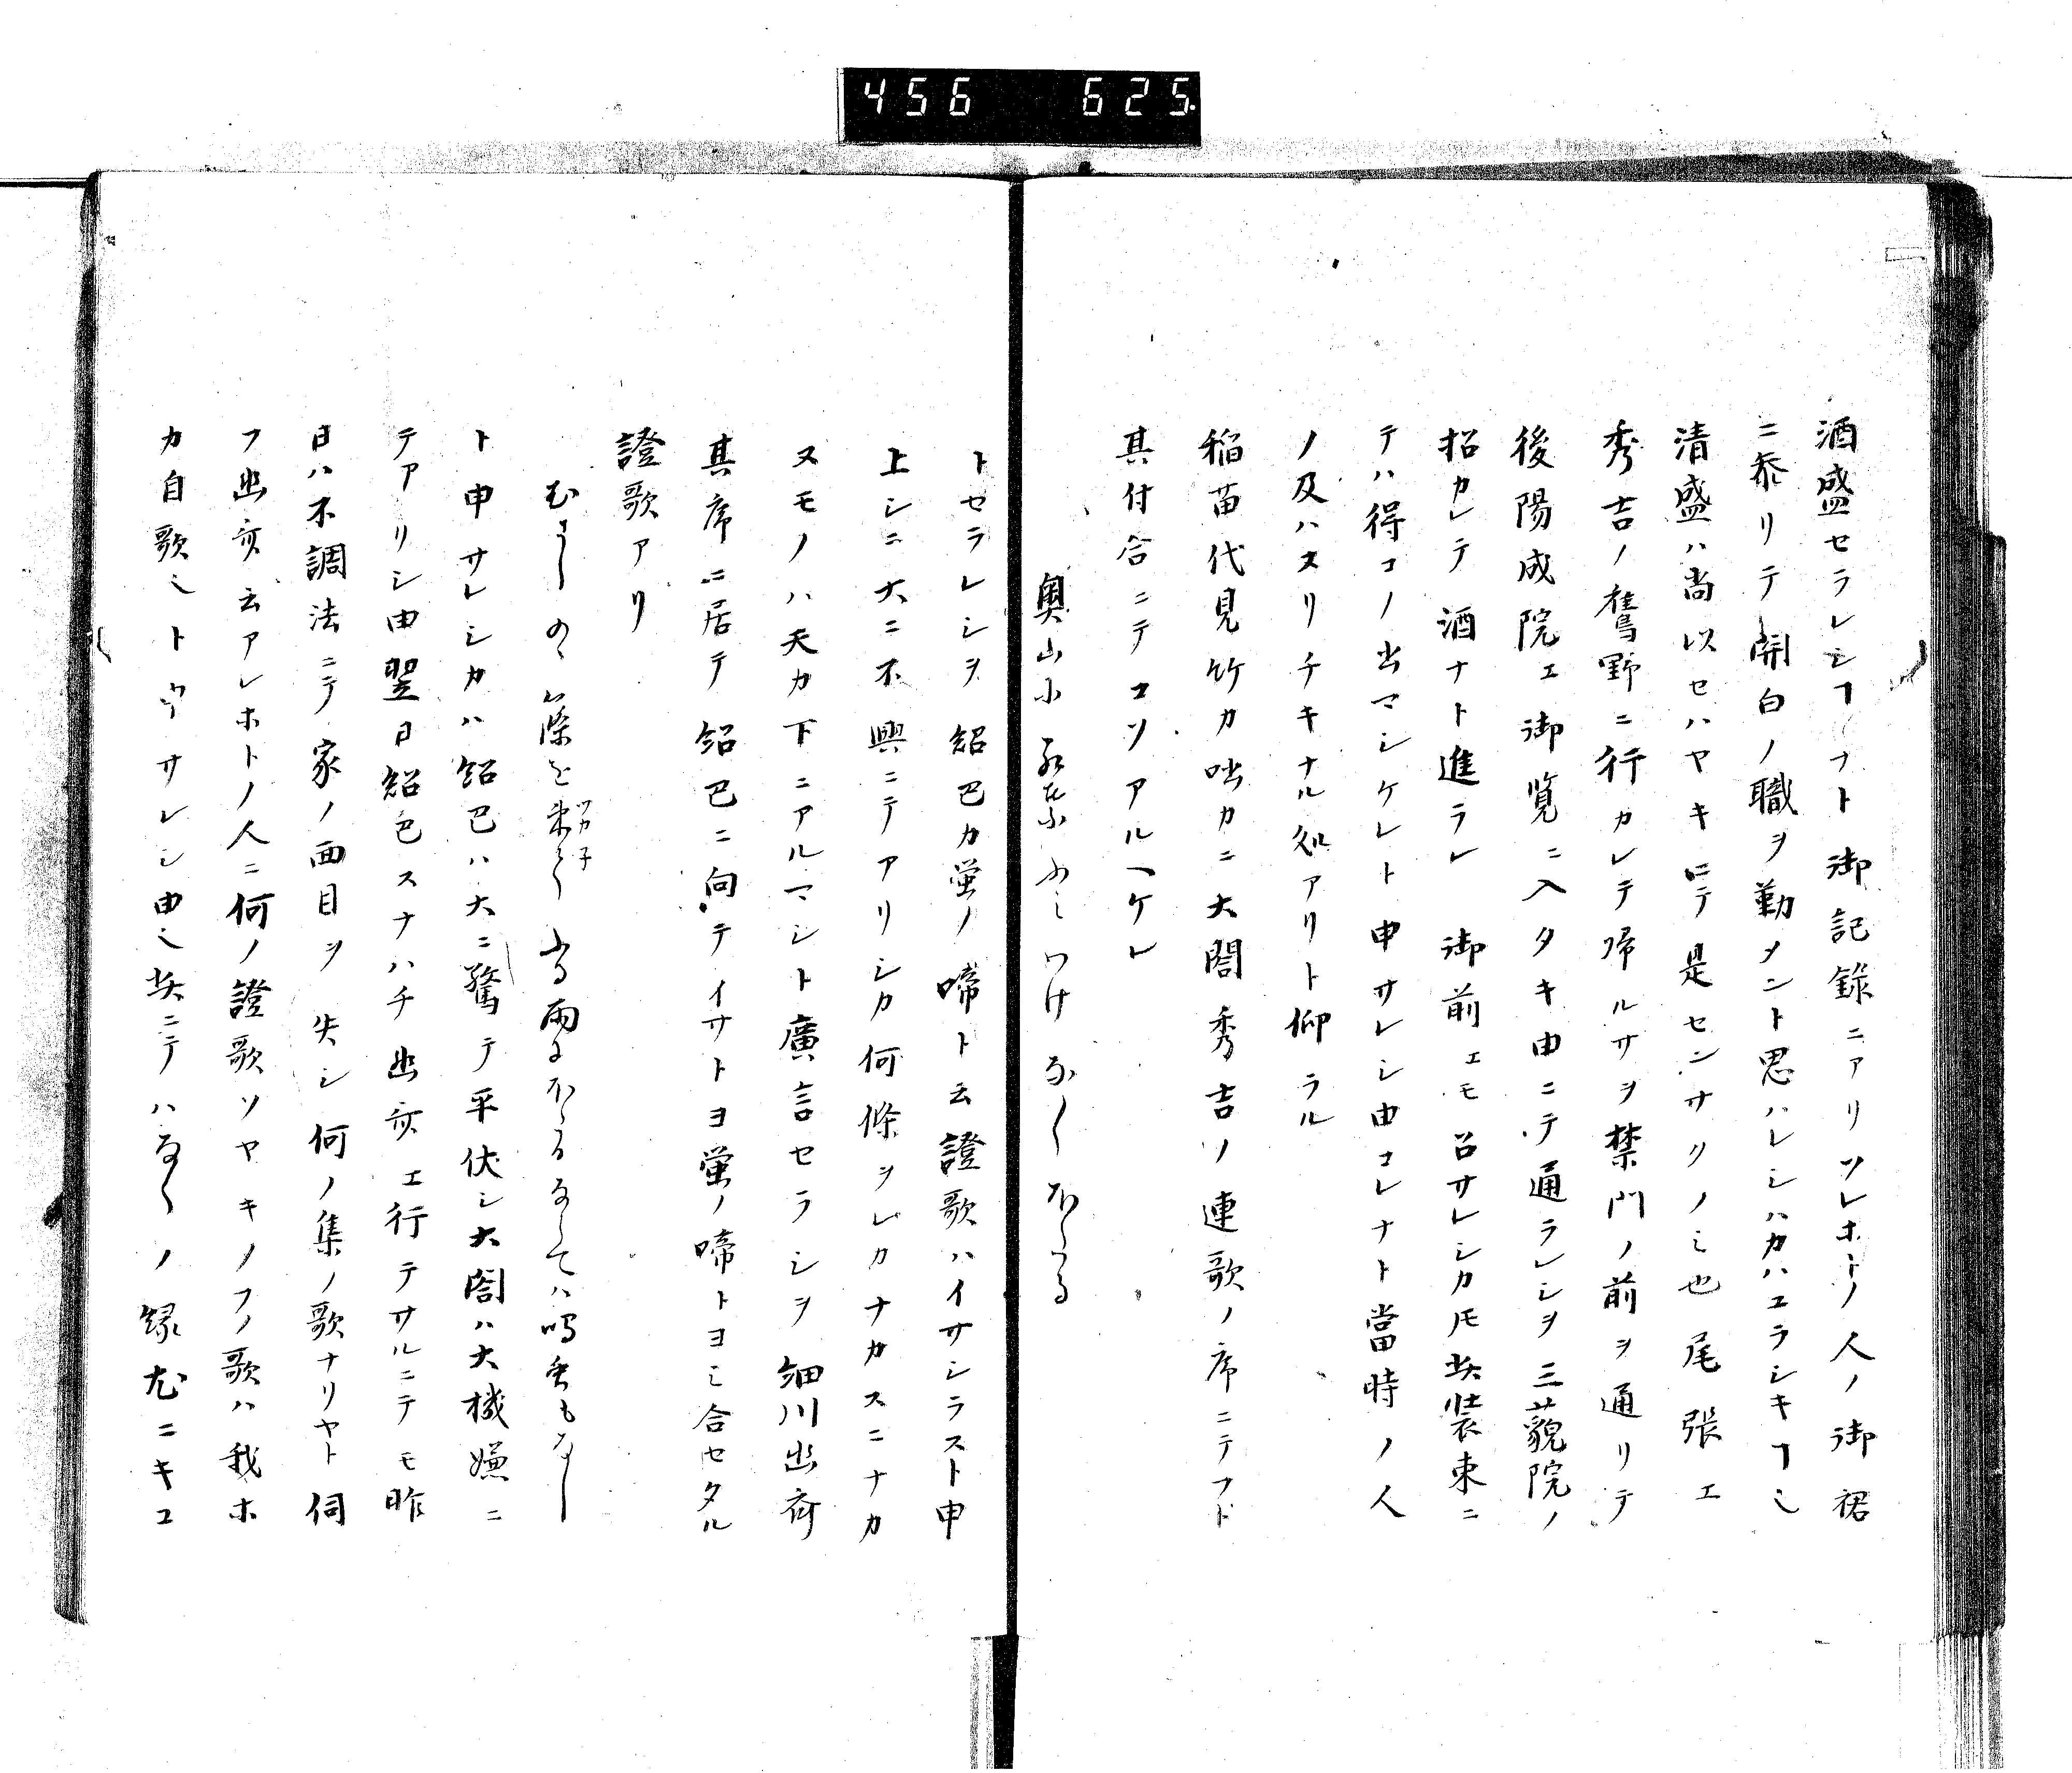 456 625
酒盛セラレシヿナト御記録ニアリソレホトノ人ノ御裙
ニ参リテ関白ノ職ヲ勤メント思ハレシハカハエラシキヿ也
清盛ハ尚以セハヤキニテ是センサクノミ也尾張エ
秀吉ノ鷹野ニ行カレテ帰ルサヲ禁門ノ前ヲ通リテ
後陽成院エ御覧ニ入タキ由ニテ通ラレシヲ三藐院ノ
招カレテ酒ナト進ラレ御前エモ召サレシカ𪜈其装束ニ
テハ得コノ出マシケレト申サレシ由コレナト當時ノ人
ノ及ハヌリチキナル処アリト仰ラル
稲苗代見竹カ咄カニ大閤秀吉ノ連歌ノ席ニテフト
其付合ニテコソアルヘケレ
奥山に紅葉ふみわけなくほたる
トセラレシヲ紹巴カ蛍ノ啼ト云證歌ハイサシラスト申
上シニ大ニ不興ニテアリシカ何條ヲレカナカスニナカ
ヌモノハ天カ下ニアルマシト廣言セラシヲ細川幽斎
其席ニ居テ紹巴ニ向テイサトヨ蛍ノ啼トヨミ合セタル
證歌アリ
むさしのゝ篠を束ねてふる雨にほたるならては鳴虫もなし
ト申サレシカハ紹巴ハ大ニ驚テ平伏シ大閤ハ大機嫌ニ
テアリシ由翌日紹巴スナハチ幽斎エ行テサルニテモ昨
日ハ不調法ニテ家ノ面目ヲ失シ何ノ集ノ歌ナリヤト伺
フ幽斎云アレホトノ人ニ何ノ證歌ソヤキノフノ歌ハ我ホ
カ自歌也トウサレシ由也